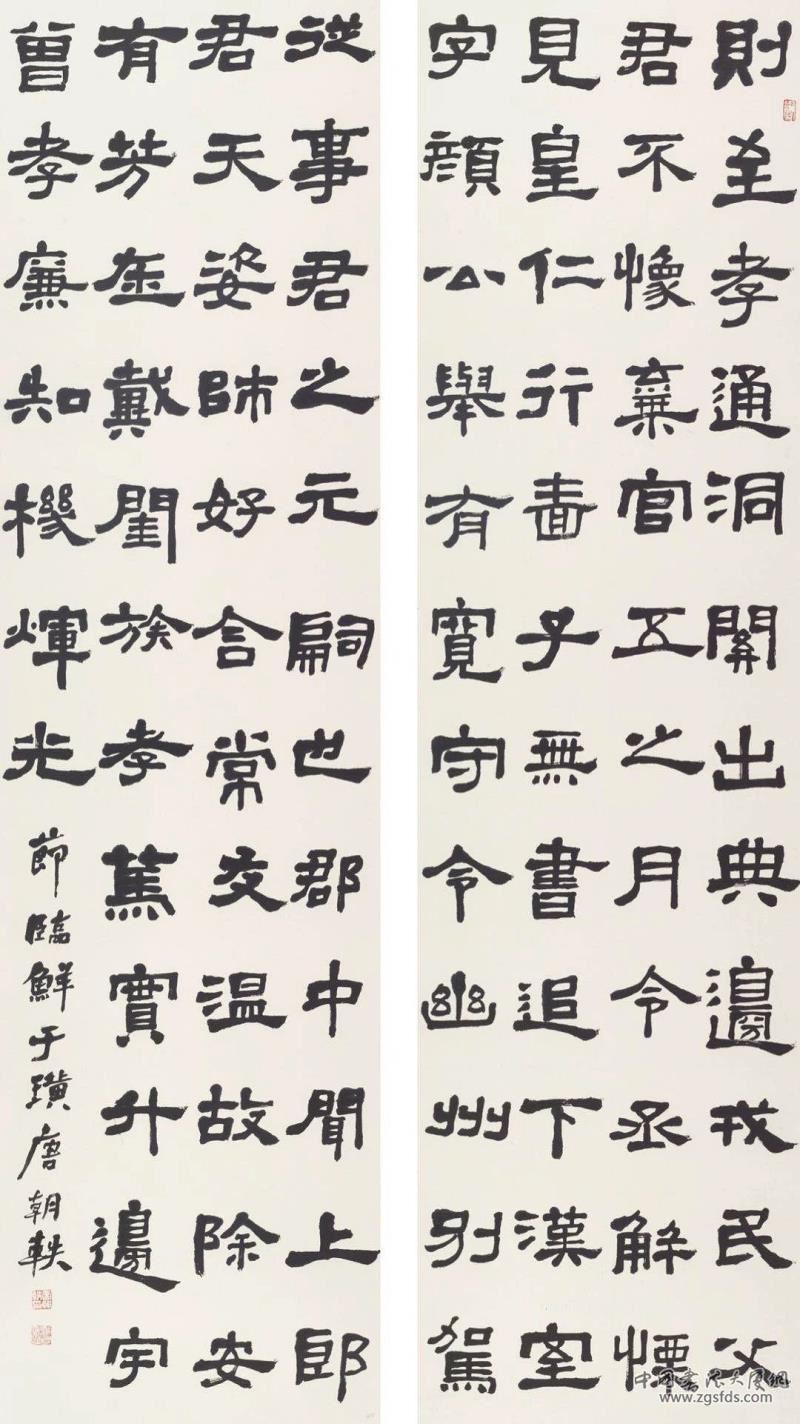 則至孝通洞開出典邊戎民父
君不像棄官五之月令丞解慄
見皇仁行壽子無書追下漢室
字顏公舉有寬守令幽州別駕
從事君之元嗣也郡中聞上郎
君天姿師好言常交溫故除安
有芳在戴閨族孝篤實升邊宇
曾孝廉知機煇光
節臨鮮于璜唐朝軼
中国书法大厦网
www.zgsfds.com